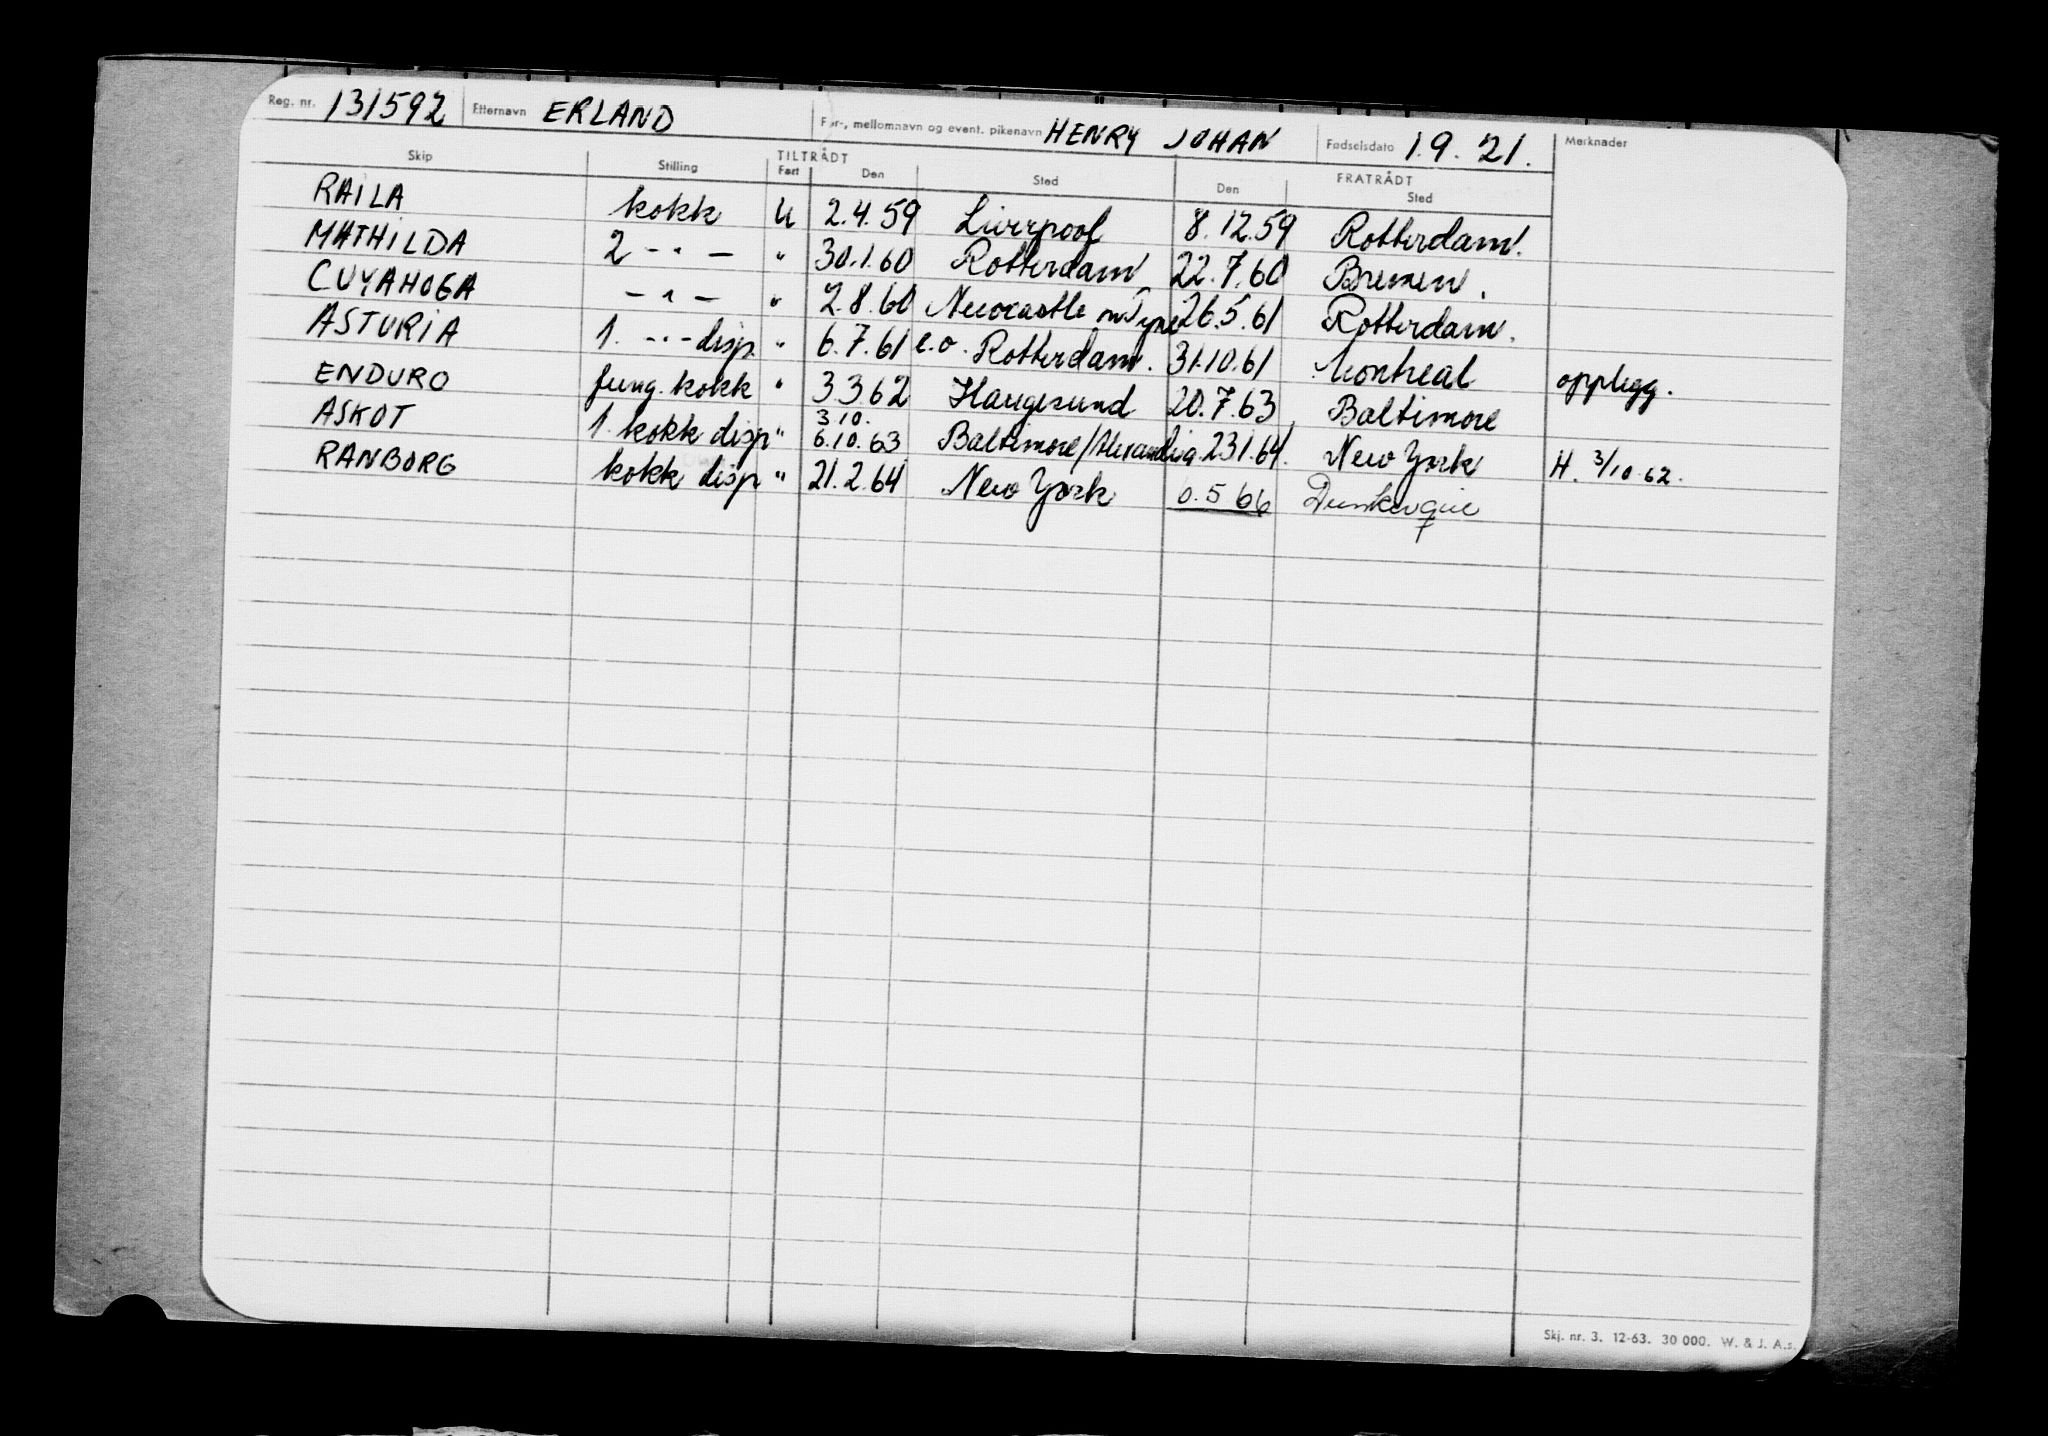 Reg. nr. 131592 Etternavn ERLAND For-, mellomnavn og event. pikenavn HENRY JOHAN Fødselsdato 1.9.21. Merknader
Skip Stilling TILTRÅDT Fart Den Sted FRATRÅDT Den Sted
RAILA kokk U 2.4.59 Liverpool 8.12.59 Rotterdam.
MATHILDA 2 - " - " 30.1.60 Rotterdam 22.7.60 Bremen.
CUYAHOGA - " - " 2.8.60 Newcastle on Tyne 26.5.61 Rotterdam.
ASTURIA 1. - " - disp " 6.7.61 e.o. Rotterdam. 31.10.61 Montreal opplegg.
ENDURO fung. kokk " 3 3 62 Haugesund 20.7.63 Baltimore
ASKOT 1. kokk disp " 3.10. 6.10.63 Baltimore/Alexandria 23.1.64. New York H. 3/10.62.
RANBORG kokk disp " 21.2.64 New York 6.5 66 Dunkerque
Skj. nr. 3. 12-63. 30 000. W. & J. A.s.